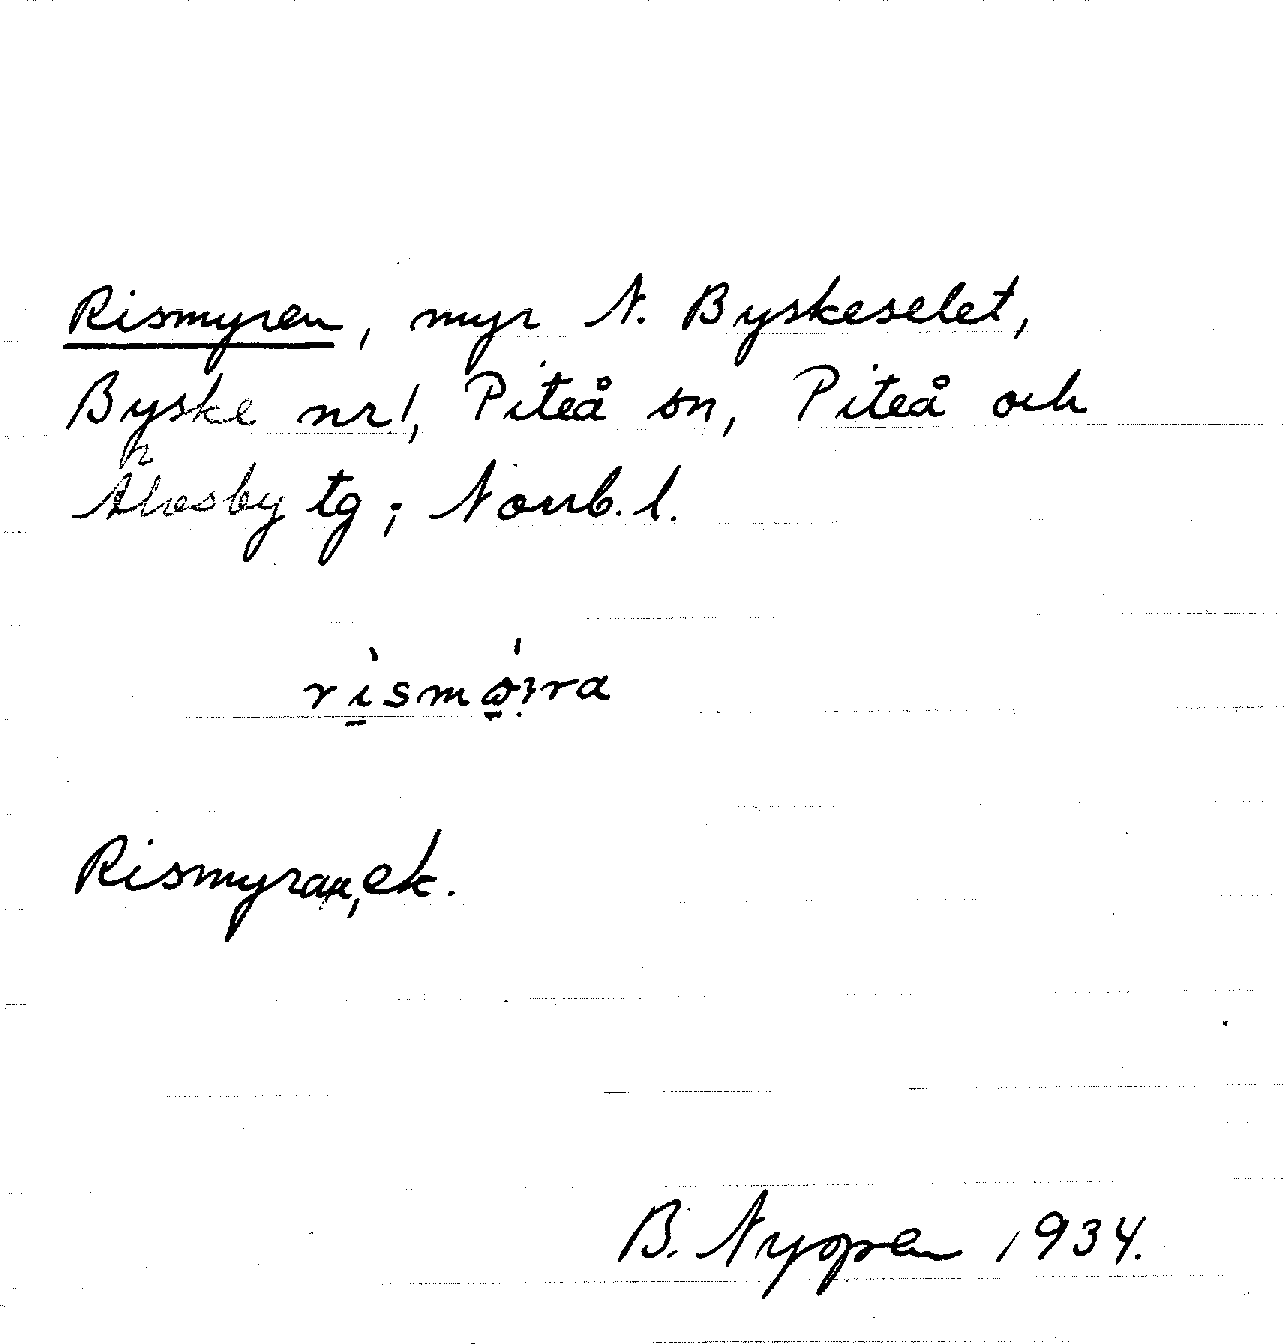 Rismyren, myr N. Byskeselet,
Byske nr 1, Piteå sn, Piteå och
Älvsby tg; Norrb. l.
Rismyran, ek.
B. Nygren 1934.